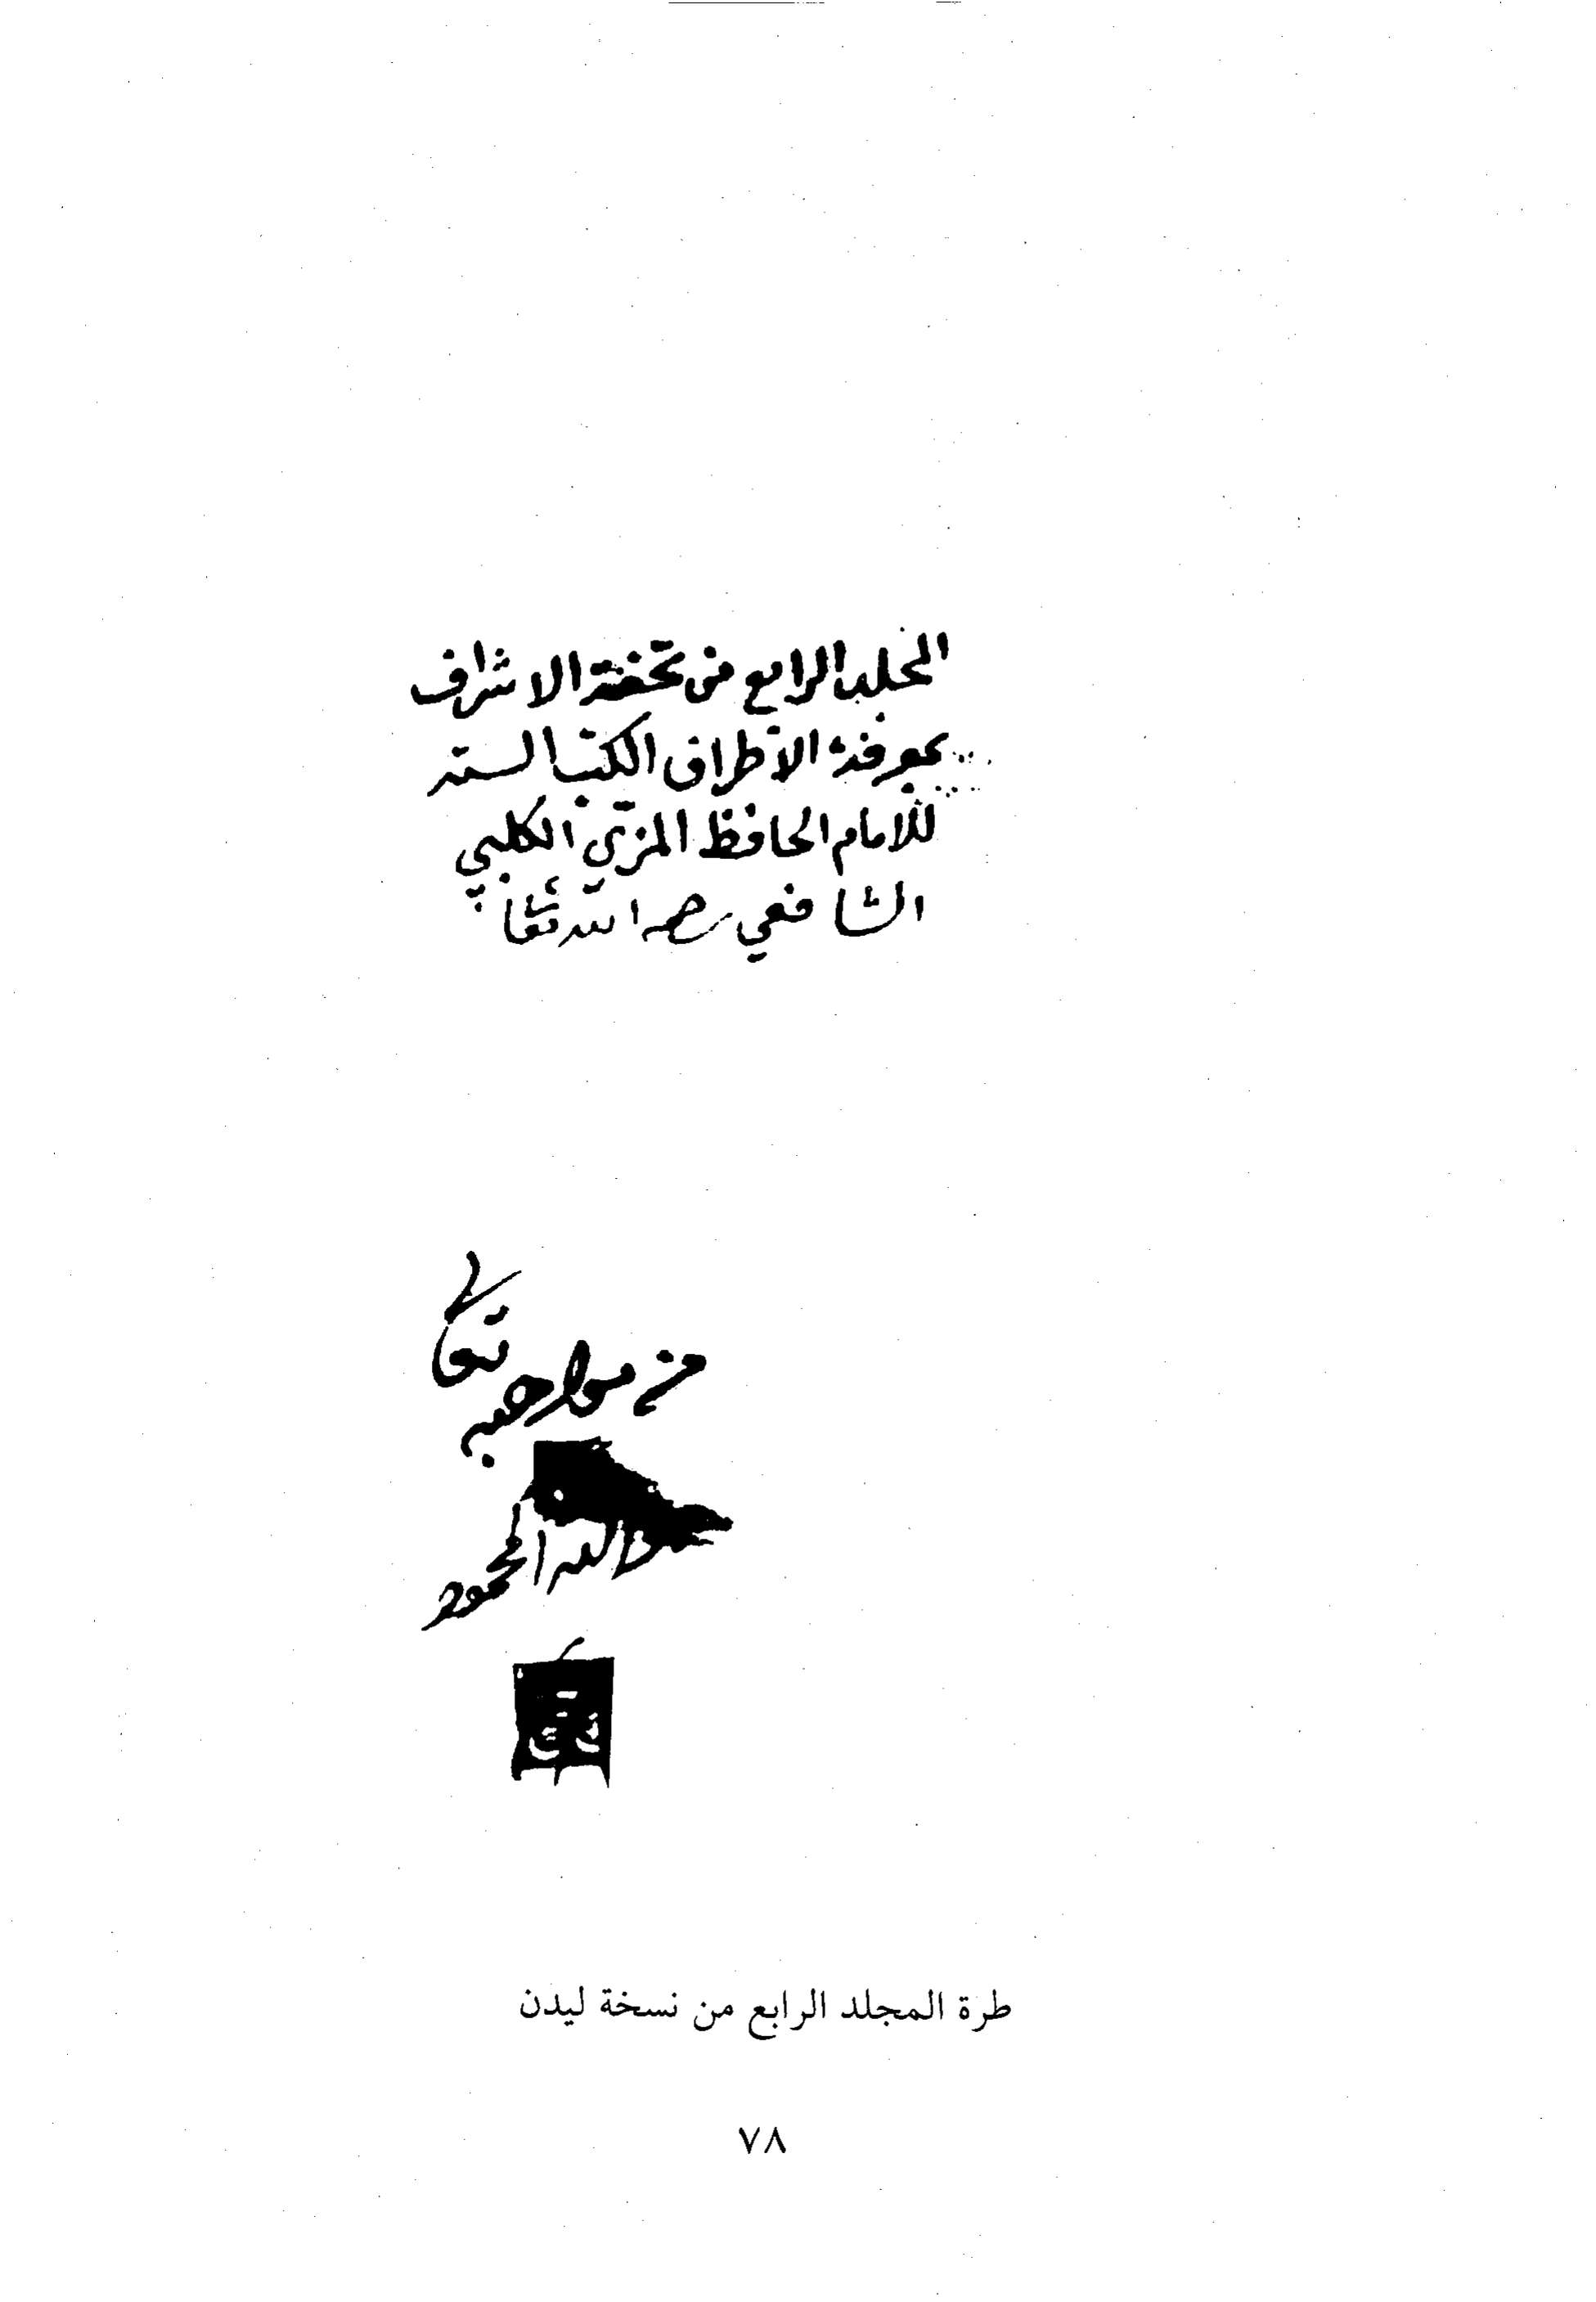 المجلد الرابع من تحفة الاشراف
بمعرفة الاطراف الكتب الستة
للامام الحافظ المزي الكلبي
الشافعي رحمه الله تعا
من مواهبه تعالى
المحمود
طرة المجلد الرابع من نسخة ليدن
٧٨